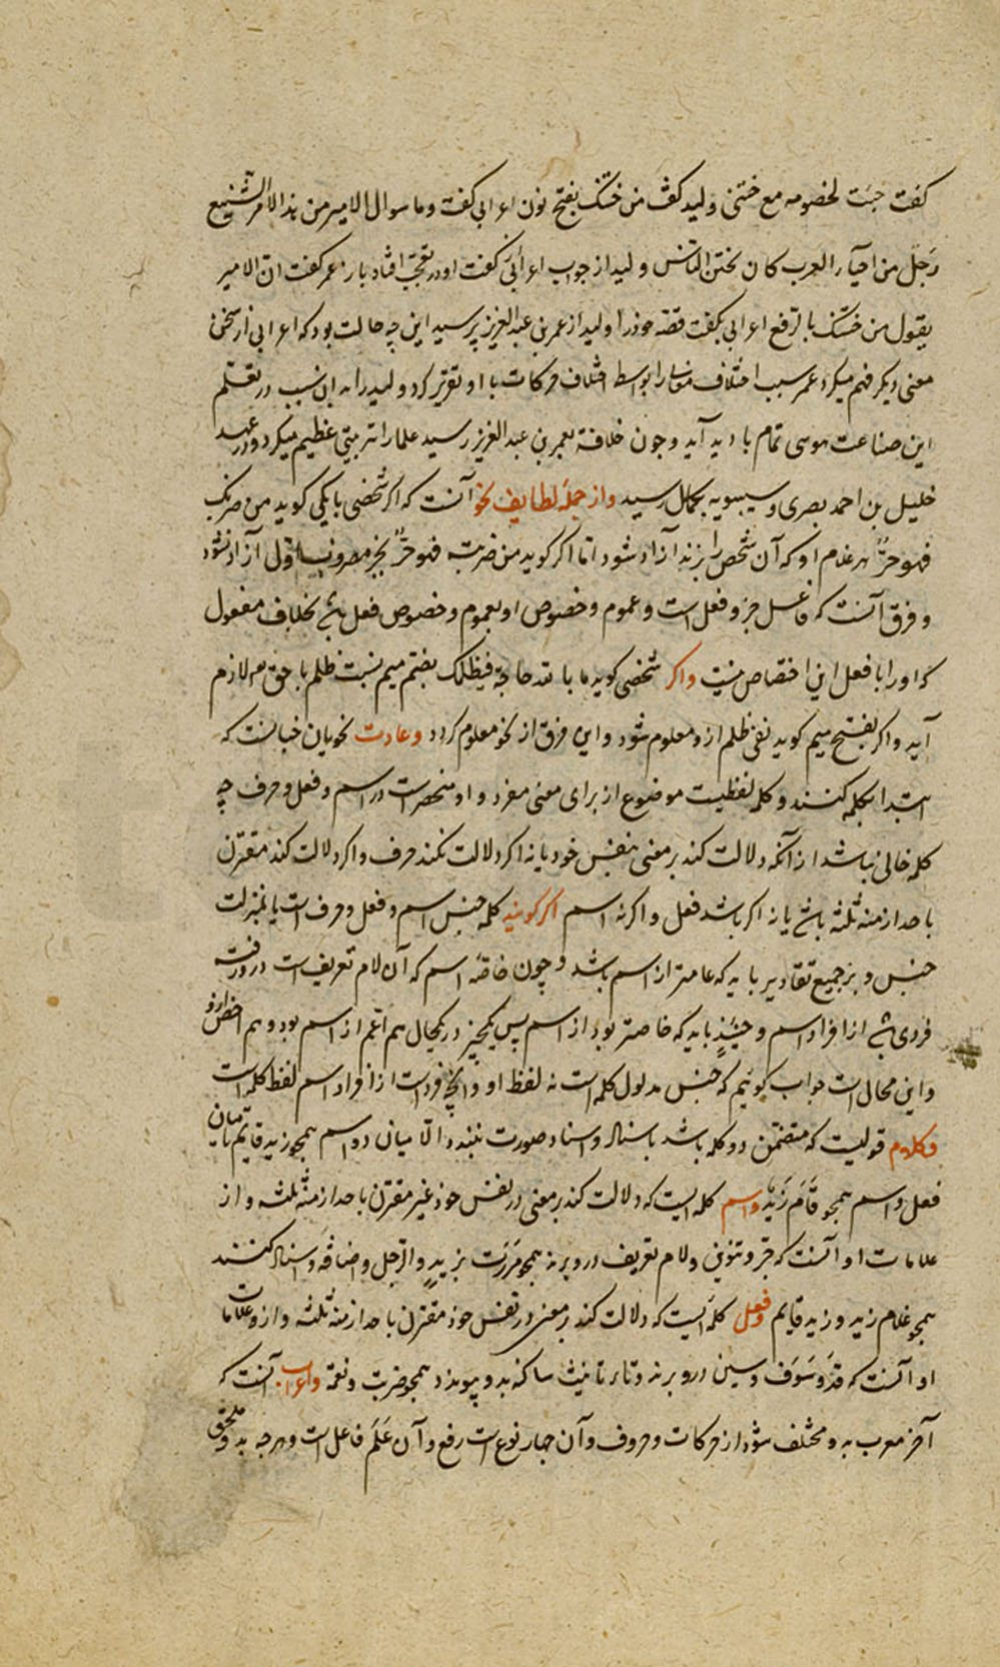 کفت جئت لخصومه مع ختنی ولید کفت من ختنک بفتح نون اعرابی کفت وما سوال الامیر من هذا الامر الشنیع
رجل من احیاء العرب کان یختن الناس ولید از جواب اعرابی کفت او در تعجب افتاد باز عمر کفت ان الامیر
یقول من ختنک بالرفع اعرابی بکفت قصه خود را ولید از عمر بن عبد العزیز پرسید این چه حالت بود که اعرابی از سخن
معنی دیکر فهم میکرد عمر سبب اختلاف معنی را بواسطه اختلاف حرکات با او تقریر کرد ولید را به این سبب در تعلم
این صناعت هوسی تمام بادید آید وچون خلافة بعمر بن عبد العزیز رسید علما را تربیتی عظیم میکرد ودر عهد
خلیل بن احمد بصری وسیبویه بکمال رسید واز جمله لطایف نحو آنست که اکر شخصی با یکی کوید من ضربک
فهو حرّ هر غلام او که آن شخص را بزند آزاد شود اما اکر کوید من ضربت فهو حرّ بجز مضروب اول آزاد نشود
وفرق آنست که فاعل جزو فعل است وعموم وخصوص او بعموم وخصوص فعل باشد بخلاف مفعول
که او را با فعل این اختصاص نیست واکر شخصی کوید ما باىه حاجة فیظلمک بضم میم نسبت ظلم با حق لازم
آید واکر بفتح میم کوید نفی ظلم ازو معلوم شود واین فرق از نحو معلوم کردد وعادت نحویان چنانست که
ابتدا بکلمه کنند وکلمه لفظیست موضوع از برای معنی مفرد و او منحصر است در اسم وفعل وحرف چه
کلمه خالی نباشد از آنکه دلالت کند بر معنی بنفس خود یا نه اکر دلالت نکند حرف واکر دلالت کند مقترن
باحد ازمنه ثلثه باشد یا نه اکر باشد فعل واکر نه اسم اکر کویند کلمه جنس اسم وفعل وحرف است یا بمنزلت
جنس وبر جمیع تقادیر باید که عامتر از اسم باشد وچون خاصه اسم که آن لام تعریف است درو رفت
فردی باشد از افراد اسم وحینئذ باید که خاصتر بود از اسم پس یکچیز در یکحال هم اعم از اسم بود وهم اخص ازو
واین محال است جواب کوئیم که جنس مدلول کلمه است نه لفظ او وانچه فردست از افراد اسم لفظ کلمه است
وکلام قولیست که متضمن دو کلمه باشد باسناد واسناد صورت نبندد الا میان دو اسم همچو زید قایم یا میان
فعل واسم همچو قام زید واسم کلمه ایست که دلالت کند بر معنی در نفس خود غیر مقترن باحد ازمنه ثلثه واز
علامات او آنست که جر وتنوین ولام تعریف درو برند همچو مررت بزید والرجل واضافه واسناد کنند
همچو غلام زید وزید قایم وفعل کلمه ایست که دلالت کند بر معنی در نفس خود مقترن باحد ازمنه ثلثه واز علامات
او آنست که قد وسوف وسین درو برند وتاء تانیث ساکنه بدو پیوندد همچو ضربت ونعمة واعراب آنست که
آخر معرب به ومختلف شود از حرکات وحروف وآن چهار نوع است رفع وآن علم فاعل است وهرچه بدو ملحق